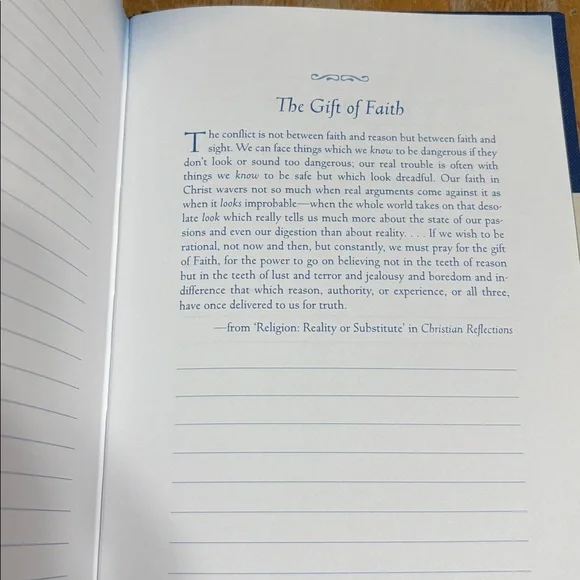 The Gift of Faith
The conflict is not between faith and reason but between faith and
sight. We can face things which we know to be dangerous if they
don't look or sound too dangerous; our real trouble is often with
things we know to be safe but which look dreadful. Our faith in
Christ wavers not so much when real arguments come against it as
when it looks improbable—when the whole world takes on that deso-
late look which really tells us much more about the state of our pas-
sions and even our digestion than about reality. . . . If we wish to be
rational, not now and then, but constantly, we must pray for the gift
of Faith, for the power to go on believing not in the teeth of reason
but in the teeth of lust and terror and jealousy and boredom and in-
difference that which reason, authority, or experience, or all three,
have once delivered to us for truth.
—from 'Religion: Reality or Substitute' in Christian Reflections